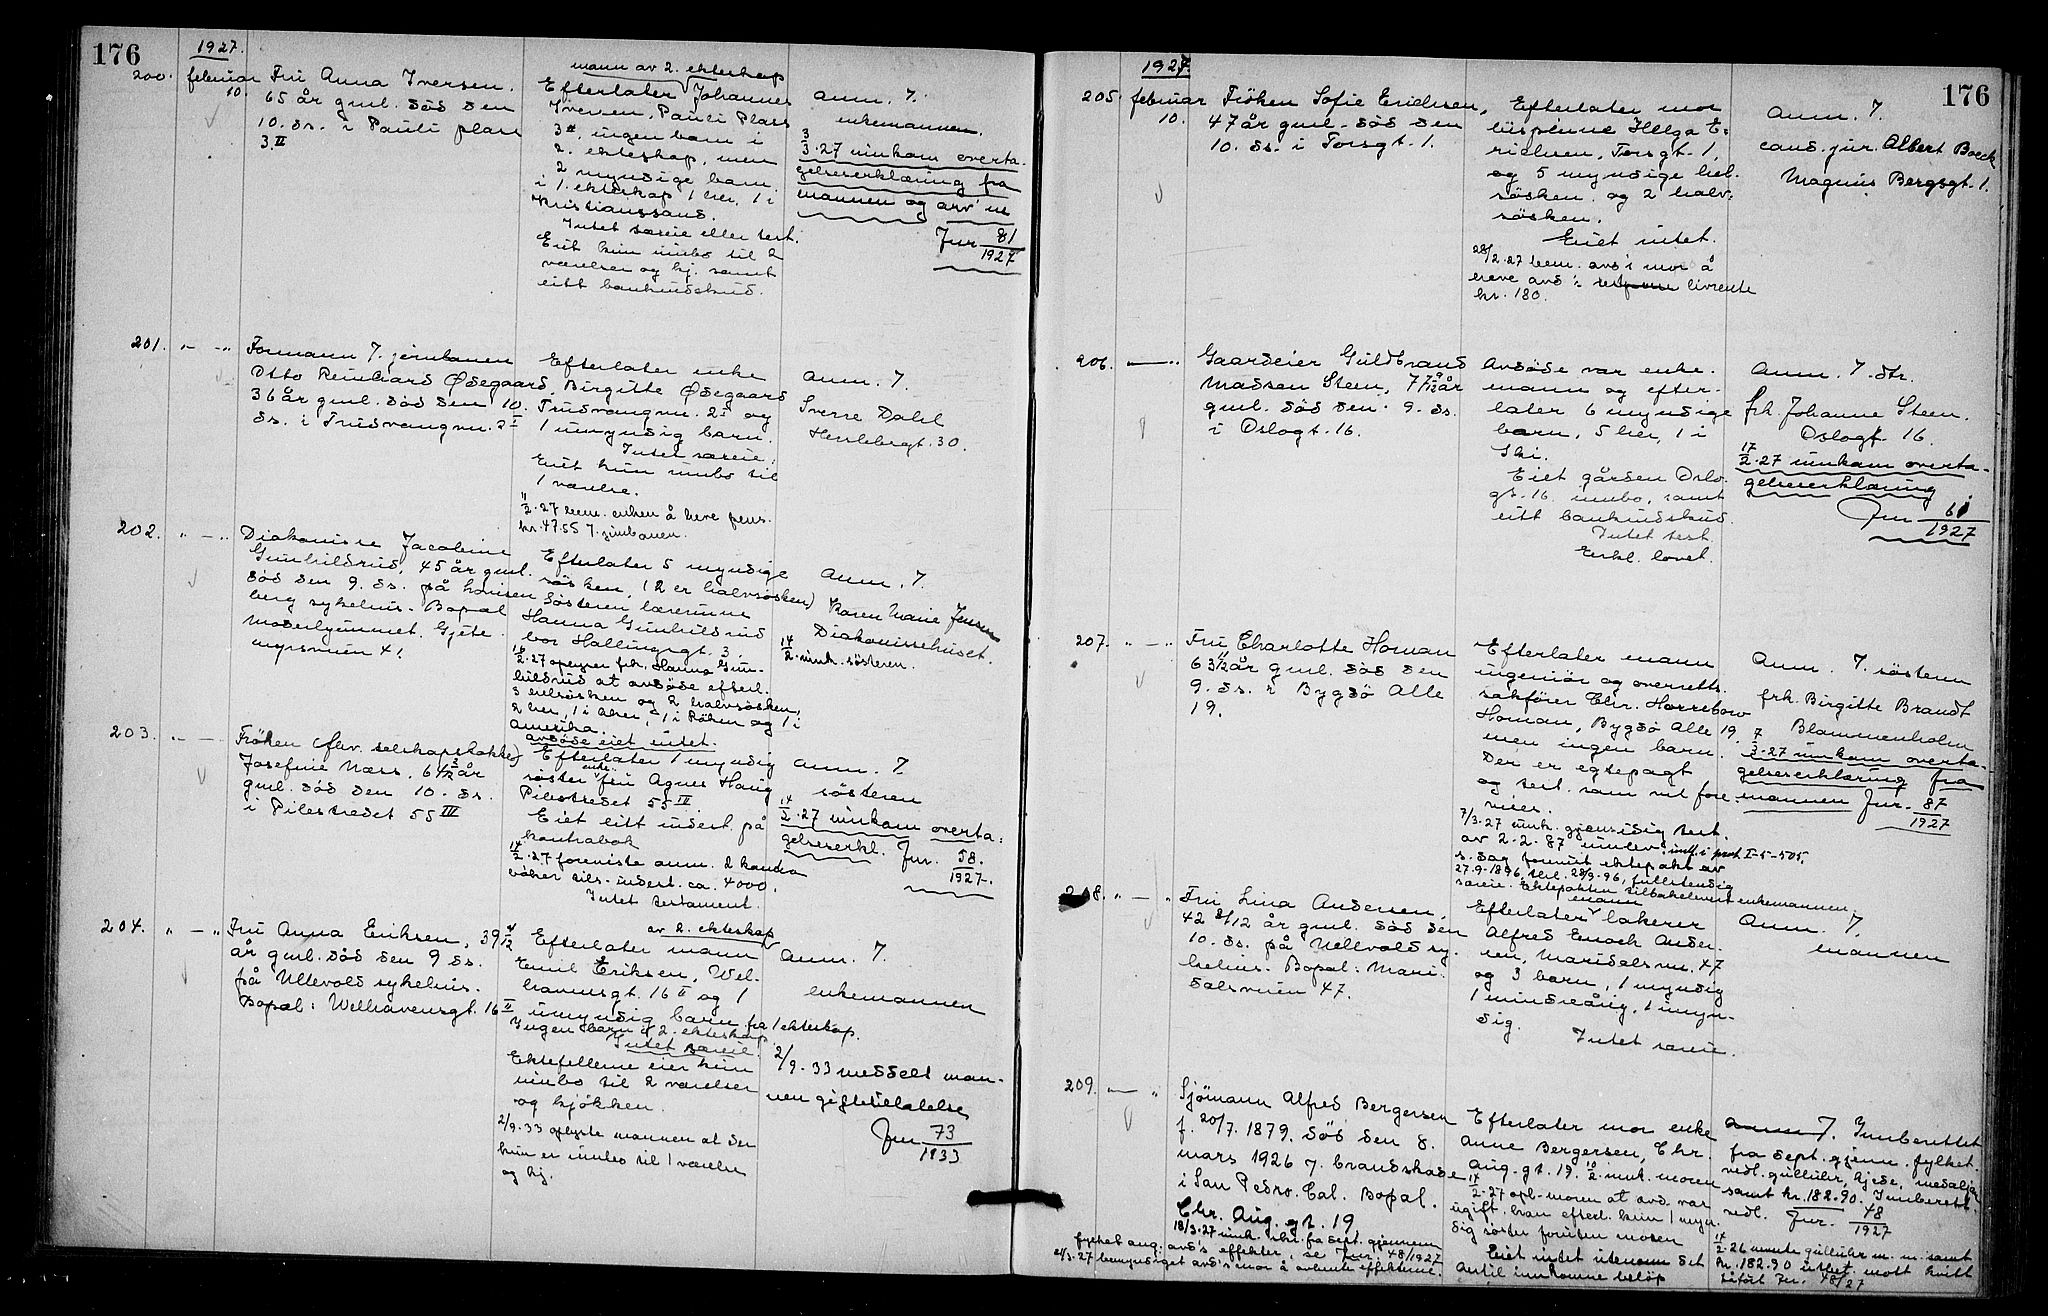 176
1927.
200. februar 10.
Fru Anna Iversen.
65 år gml. död den
10. ds. i Pauli plass
3 II
mann av 2. ekteskap
Efterlater Johannes
Iversen, Pauli Plass
3 II, ingen barn i
2. ekteskap, men
2 myndige barn
i 1. ekteskap 1 her, 1 i
Kristianssand.
Intet særeie eller test.
Eiet kun innbo til 2
værelser og kj. samt
litt bankinnskud.
Anm. 7.
enkemannen.
3/3.27 innkom overta-
gelseserklæring fra
mannen og arv
Jur 81/1927
201. " - "
Formann v. jernbanen
Otto Reinhard Ødegaard,
36 år gml. död den 10.
ds. i Trudvangvn. 2 I
Efterlater enke
Birgitte Ødegaard
Trudvangvn. 2 I og
1 umyndig barn.
Intet særeie.
Eiet kun innbo til
1 værelse.
11/2.27 bem. enken å heve pens.
kr. 47.55 v. jernbanen.
Anm. 7.
Sverre Dahl
Herslebsgt. 30.
202. " - "
Diakonisse Jacobine
Gunhildrud, 45 år gml.
död den 9. ds. på Lovisen
berg sykehus. Bopæl
Moderhjemmet. Gjete-
myrsveien 41
Efterlater 5 myndige
söskem, (2 er halvsösken)
Sösteren lærerinne
Hanna Gunhildrud
bor Hallingsgt. 3.
16/2.27 oplyser frk. Hanna Gun-
hildrud at avdöde efterl.
3 helsösken og 2 halvsösken,
2 her, 1 i Aker, 1 i Röken og 1 i
Amerika.
avdöde eiet intet.
Anm. 7.
Karen Marie Jensen
Diakonissehuset.
14/2. innk. sösteren.
203. " - "
Fröken (fhv. selskapslokke)
Josefine Næss, 61 3/12 år
gml. död den 10. ds.
i Pilestredet 55 III
Efterlater 1 myndig
söster enke fru Agnes Haug
Pilestredet 55 III.
Eiet litt innest. på
kontrabok
14/2.27 foreviste anm. 2 kontra
böker tils. innest. ca. 4000.
Intet testament.
Anm. 7.
sösteren
14/2.27 innkom overta-
gelseserkl. Jur. 58./1927.
204. " - "
Fru Anna Eriksen, 39 4/12
år gml. död den 9 ds.
på Ullevold sykehus.
Bopæl: Welhavensgt. 16 II
av 2. ekteskap
Efterlater mann
Emil Eriksen, Wel-
havensgt. 16 II og 1
umyndig barn fra 1 ekteskap.
Ingen barn i 2. ekteskap
Intet særeie.
Ektefellerne eier kun
innbo til 2 værelser
og kjökken.
2/9.33 oplyste mannen at der
kun er innbo til 1 værelse
og kj.
Anm. 7.
enkemannen
2/9.33 meddelt man-
nen giftetillatelse
Jur 73/1933
176
1927.
205. februar 10.
Fröken Sofie Erichsen,
47 år gml. död den
10. ds. i Torsgt. 1.
Efterlater mor
Helga E-
richsen, Torsgt. 1,
og 5 myndige hel-
sösken og 2 halv-
sösken.
Eiet intet.
28/2.27 bem. avd's mor å
heve avd's livrente
kr. 180.
Anm. 7.
cand. jur. Albert Boeck
Magnus Bergsgt. 1.
206. — "
Gaardeier Guldbrand
Madsen Steen, 77 9/12 år
gml. död den 9. ds.
i Oslogt. 16.
Avdöde var enke-
mann og efter-
later 6 myndige
barn, 5 her, 1 i
Ski.
Eiet gården Oslo-
gt. 16. innbo, samt
litt bankinnskud.
Intet test.
Erkl. lovet.
Anm. 7. dtr.
frk. Johanne Steen.
Oslogt. 16.
17/2.27 innkom overta-
gelseserklæring
Jur 61/1927
207. " - "
Fru Charlotte Homan
63 1/12 år gml. död den
9. ds. i Bygdö Alle
19.
Efterlater mann
ingeniör og overretts-
sakförer Chr. Horrebow
Homan, Bygdö Alle 19
men ingen barn.
Der er egtepagt
og test. som vil fore-
vises.
7/3.27 innk. gjensidig test.
av 2.2.87 innlev. innf. i prot. I-5-505,
s. dag forevist ektepakt av
27.9.1896, tgl. 28/9.96, fullstendig
særeie. Ektepakten tilbakelevert enkemannen.
Anm. 7. sösteren
frk. Birgitte Brandt
Blommenholm
7/3.27 innkom overta-
gelseserklæring fra
mannen Jur. 87/1927
208. " - "
Fru Lina Andersen,
42 8/12 år gml. död den
10. ds. på Ullevold sy-
kehus. Bopæl: Mari-
dalsveien 47.
Efterlater mann lakerer
Alfred Enoch Ander-
sen, Maridalsvn. 47
og 3 barn, 1 myndig
1 mindreårig, 1 umyn-
dig.
Intet særeie.
Anm. 7.
mannen
209. — "
Sjömann Alfred Bergersen
f. 20/7. 1879. död den 8.
mars 1926 v. brandskade
i San Pedro. Cal. Bopæl.
Chr. Aug. gt. 19
18/3.27 innk. skr. fra dept. gjennem
fylket ang. avd's effekter, se Jur. 48/1927
21/3.27 bemyndiget avd's mor å avhente effekterne.
Efterlater mor enke
Anne Bergersen, Chr.
Aug. gt. 19. 10/2 innk. moren
17/2.27 opl. moren at avd. var
ugift. han efterl. kun 1 myn-
dig söster foruten moren
Eiet intet utenom det
dertil innkomne belöp
Anm 7. Innberettet
fra dept. gjenn. fylket.
vedl. gullur, kjede, medaljon
samt kr. 182.90. Innberetn.
vedl. Jur. 48/1927
14/2.26 mente gullur m. m. samt
kr. 182.90 utlev. mott kvitt
tilfört Jur. 48/27